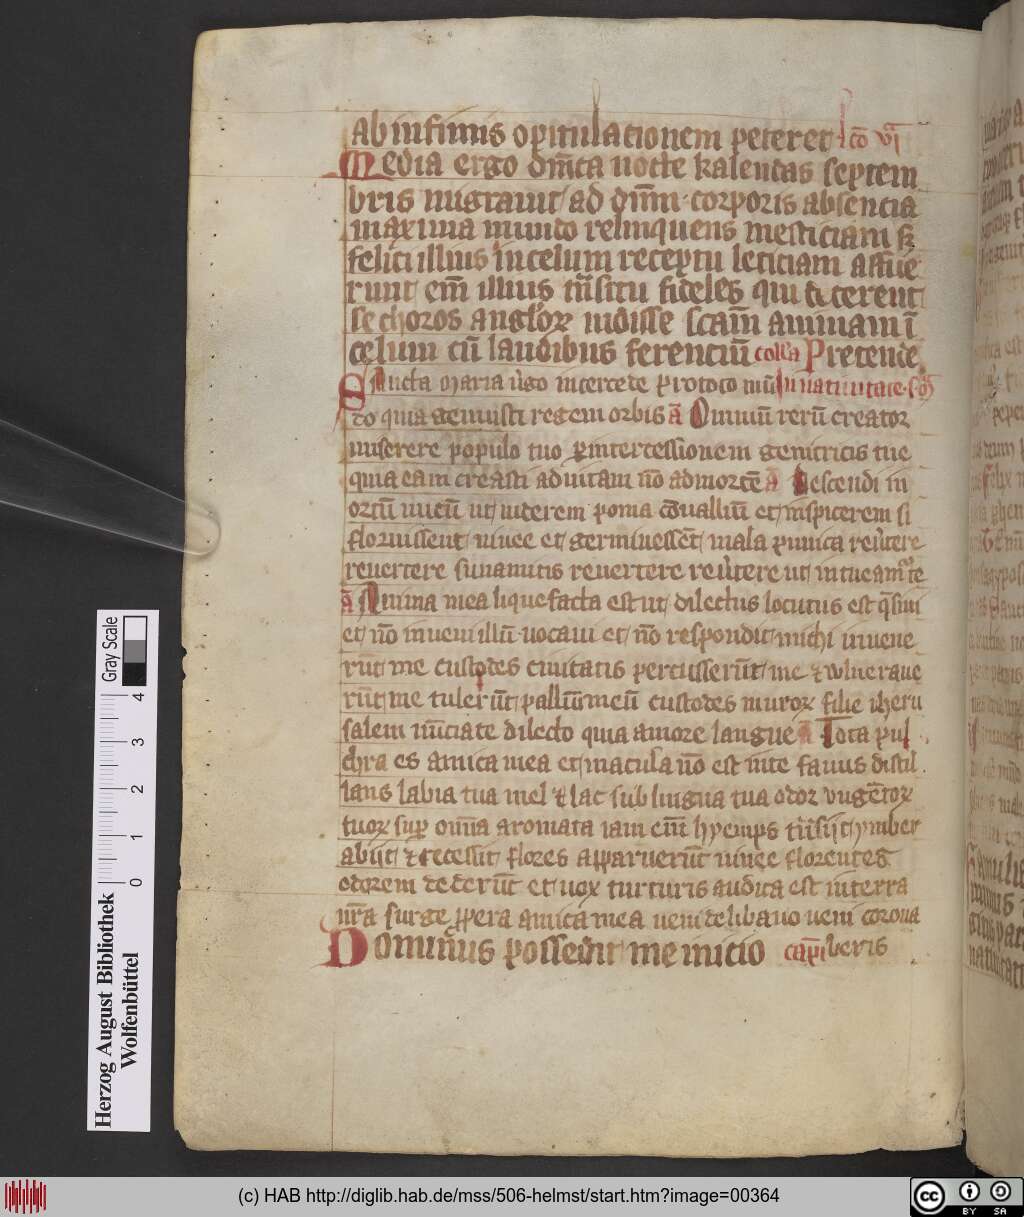 ab infimis opitulationem peteret lco vi
Media ergo dn̄ica nocte kalendas septem
bris migrauit ad dn̄m corporis absencia
maxima mundo relinquens mesticiam sꝫ
felici illius in celum receptu leticiam affue
runt em̄ illius tn̄situ fideles qui dicerent
se choros anglorꝝ uidisse scam̄ animam ī
celum cū laudibus ferenciū coll̄a Pretende
Sancta maria ṽgo intercede pro toto mū In natiuitate
do quia genuisti regem orbis ā Omniū rerū creator
miserere populo tuo ꝑ intercessionem genitricis tue
quia eam creasti ad uitam nō ad mortē ā Descendi in
ortū nucū ut uiderem poma cōualliū et inspicerem si
floruissent uinee et germinassēt mala punica reũtere
reuertere sunamitis reuertere reũtere ut intueamur te
ā Anima mea liquefacta est ut dilectus locutus est q̄siui
et nō inueni illū uocaui et nō respondit michi inuene
rūt me custodes ciuitatis percusserūt me ⁊ wlneraue
rūt me tulerūt pallium meū custodes murorꝝ filie iheru
salem nūciate dilecto quia amore langueo ā Tota pul
chra es amica mea et macula nō est in te fauus distil
lans labia tua mel ⁊ lac sub lingua tua odor vngētorꝝ
tuorꝝ suꝑ omīa aromata iam em̄ hyemps tn̄siit ymber
abiit ⁊ recessit flores apparuerūt uinee florentes
odorem dederūt et uox turturis audita est in terra
nr̄a surge ꝓpera amica mea ueni de libano ueni corona
Dominus possedit me inicio cap̄i beris
Herzog August Bibliothek
Wolfenbüttel
0 1 2 3 4
Gray Scale
(c) HAB http://diglib.hab.de/mss/506-helmst/start.htm?image=00364
cc BY SA